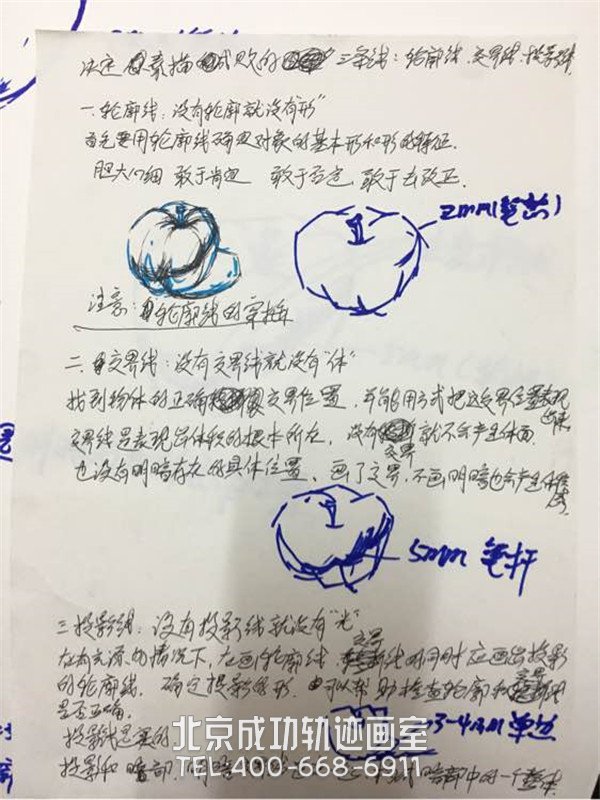 决定素描成败的三条线：轮廓线、交界线、投影线
一.轮廓线：没有轮廓就没有"形"
首先要用轮廓线确定对象的基本形和形的特征.
胆大心细 敢于肯定 敢于否定，敢于去改正.
2mm(笔
注意：轮廓线的穿插
二.交界线：没有交界线就没有"体"
找到物体的正确交界位置，并能用方式把这交界位置表现出来
交界线是表现出体积的根本所在，没有交界就不会产生体面.
也没有明暗存在的具体位置，画了交界，不画明暗也会产生体
5mm 笔杆
三投影线：没有投影线就没有"光"
在有光源的情况下，在画轮廓线，交界线的同时应画出投影
的轮廓线，确定投影的形，可以帮助检查轮廓和交界
是否正确.
3-4mm 单边
投影线是
投影和暗部，中的一个整体
北京成功轨迹画室
TEL:400-668-6911